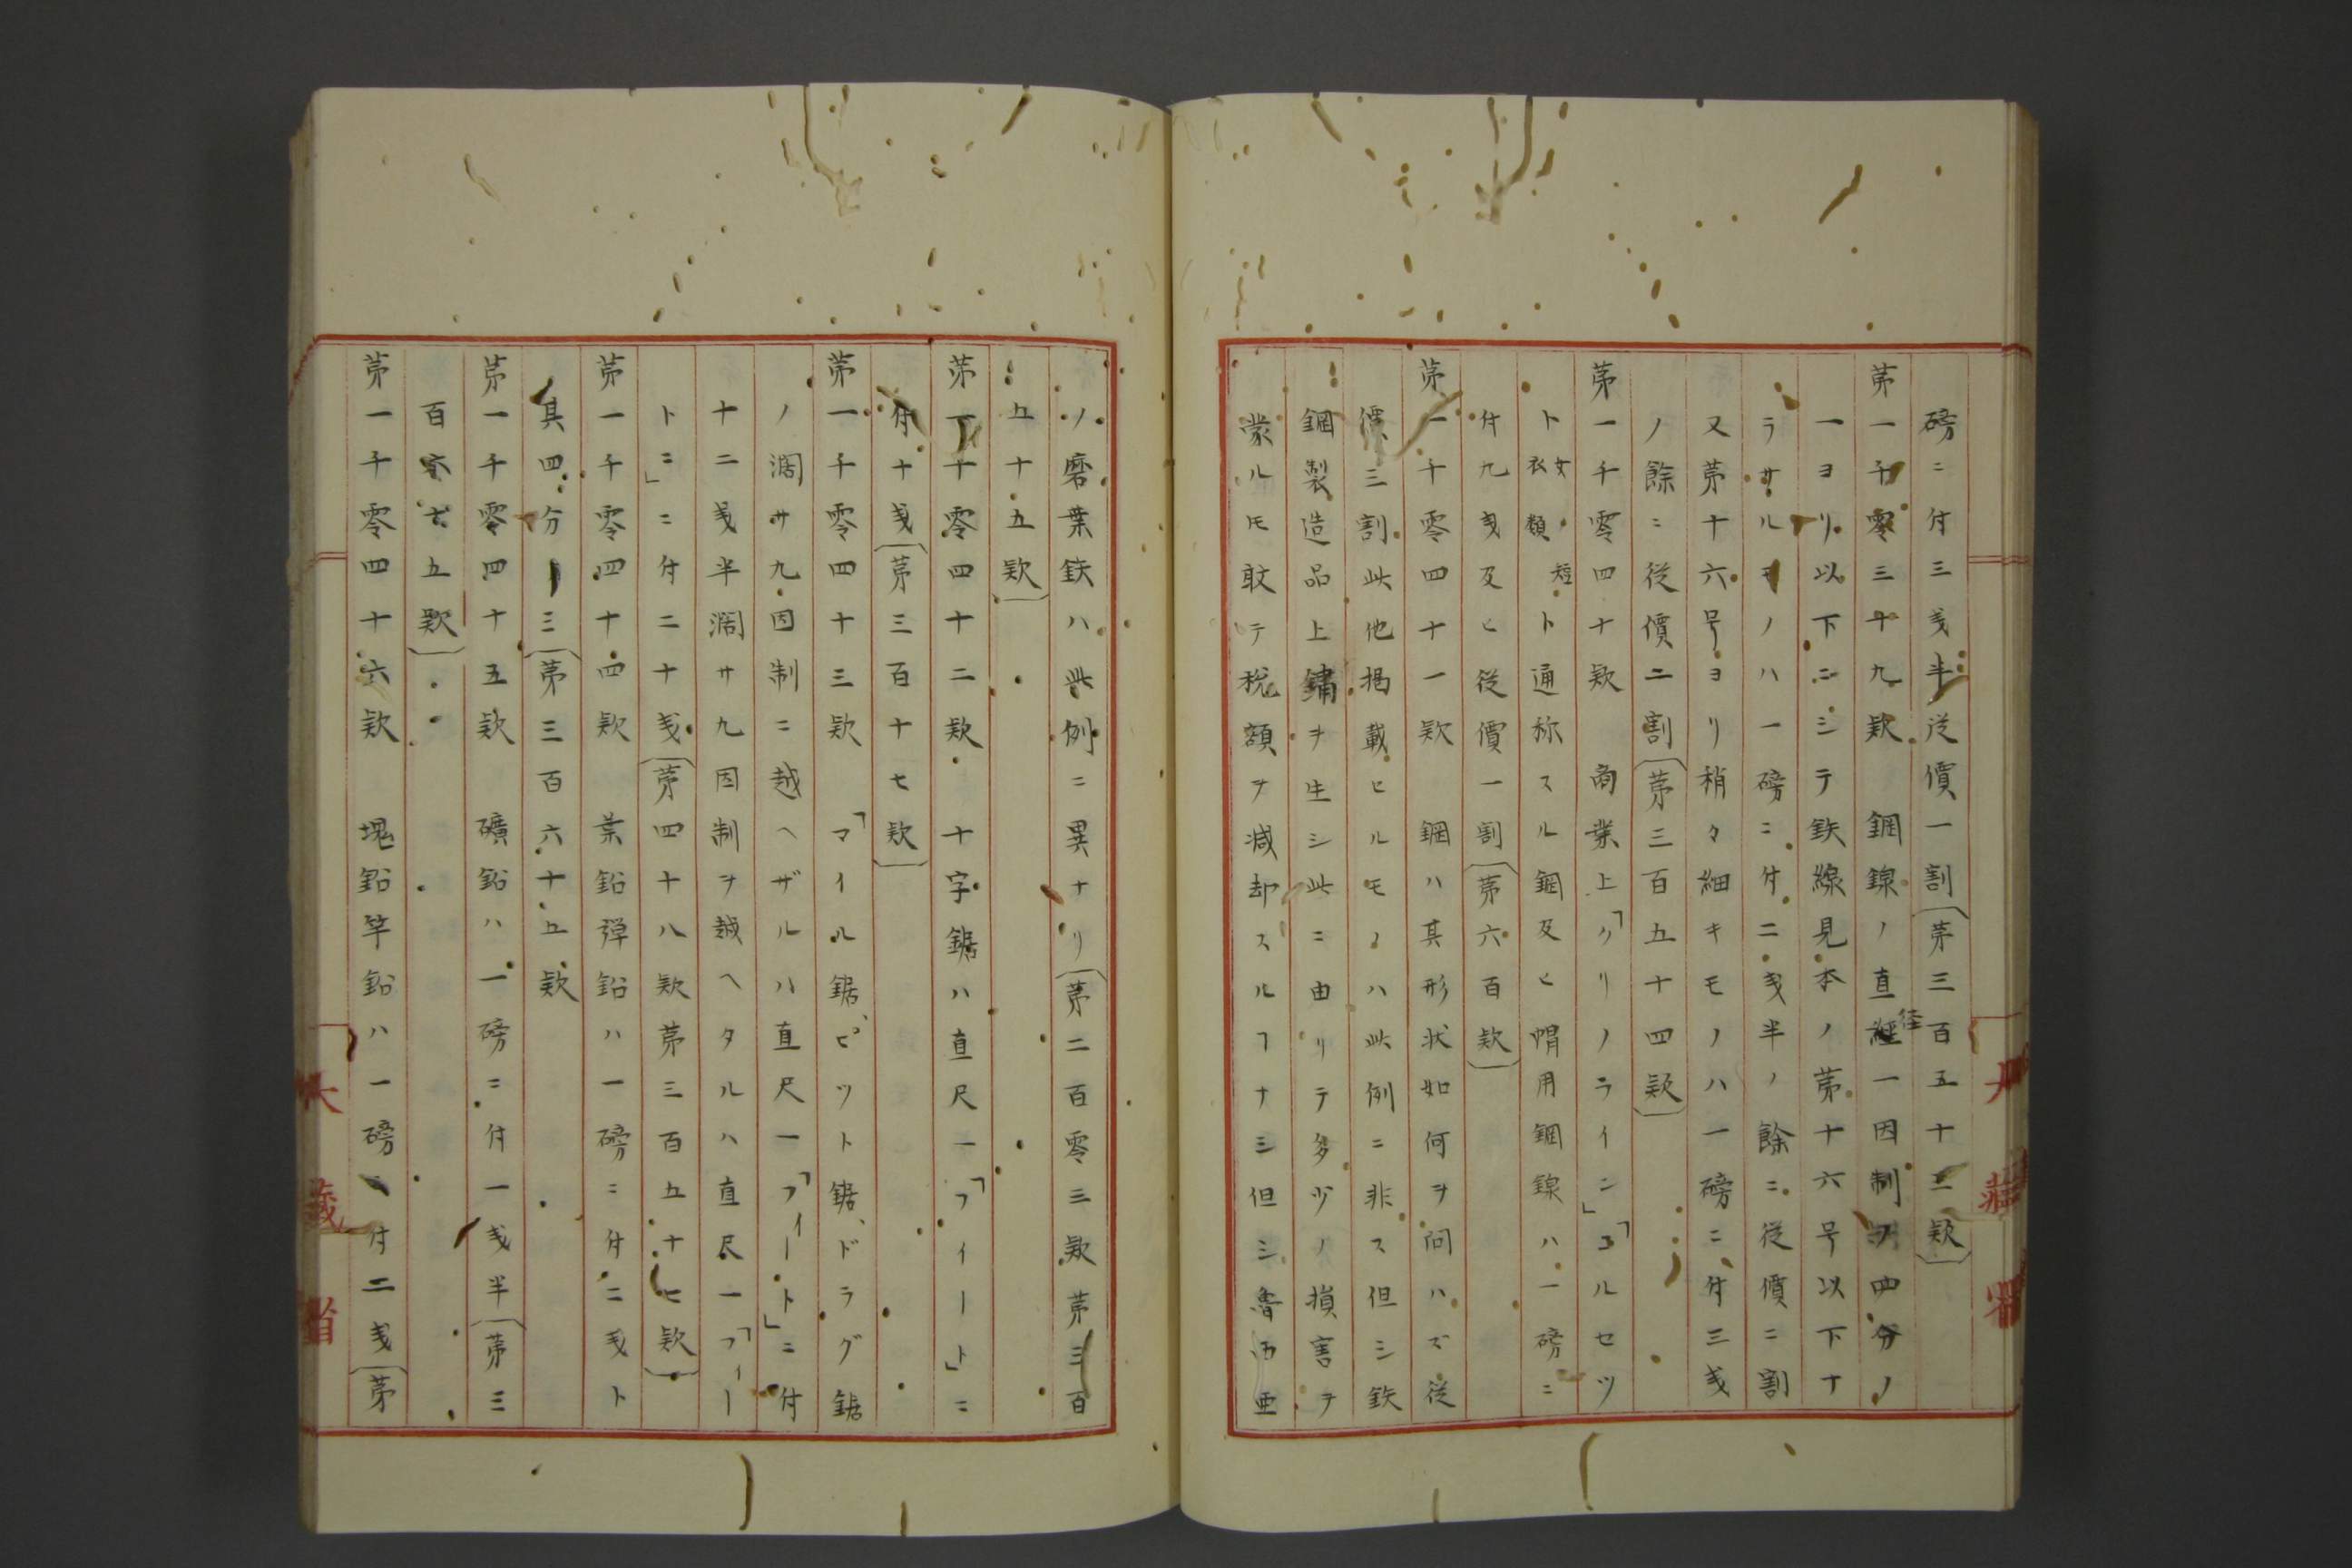 磅ニ付三戋半從價一割(第三百五十三款)
第一千零三十九款　鋼線ノ直徑一因制ヲ四分ノ
一ヨリ以下ニシテ鉄線見本ノ第十六号以下ナ
ラサルモノハ一磅ニ付二戋半ノ餘ニ從價二割
又第十六号ヨリ稍々細キモノハ一磅ニ付三戋
ノ餘ニ從價二割(第三百五十四款)
第一千零四十款　商業上「クリノライン」「コルセツ
ト女衣類短ト通称スル鋼及ヒ帽用鋼線ハ一磅ニ
付九戋及ヒ從價一割(第六百款)
第一千零四十一款　鋼ハ其形状如何ヲ問ハズ從
價三割此他掲載セルモノハ此例ニ非ス但シ鉄
鋼製造品上鏽ヲ生シ此ニ由リテ多少ノ損害ヲ
蒙ルモ敢テ税額ヲ減却スルヿナシ但シ魯西亜
ノ磨葉鉄ハ此例ニ異ナリ(第二百零三款第三百
五十五款)
第一千零四十二款　十字鋸ハ直尺一「フィート」ニ
付十戋(第三百十七款)
第一千零四十三款　「マイル鋸、ピツト鋸、ドラグ鋸
ノ濶サ九因制ニ越ヘザルハ直尺一「フィート」ニ付
十二戋半濶サ九因制ヲ越ヘタルハ直尺一「フィー
トニ」ニ付二十戋(第四十八款第三百五十七款)
第一千零四十四款　葉鉛弾鉛ハ一磅ニ付二戋ト
其四分ノ三(第三百六十五款
第一千零四十五款　礦鉛ハ一磅ニ付一戋半(第三
百六十五款)
第一千零四十六款　塊鉛竿鉛ハ一磅ニ付二戋(第
大藏省
大藏省